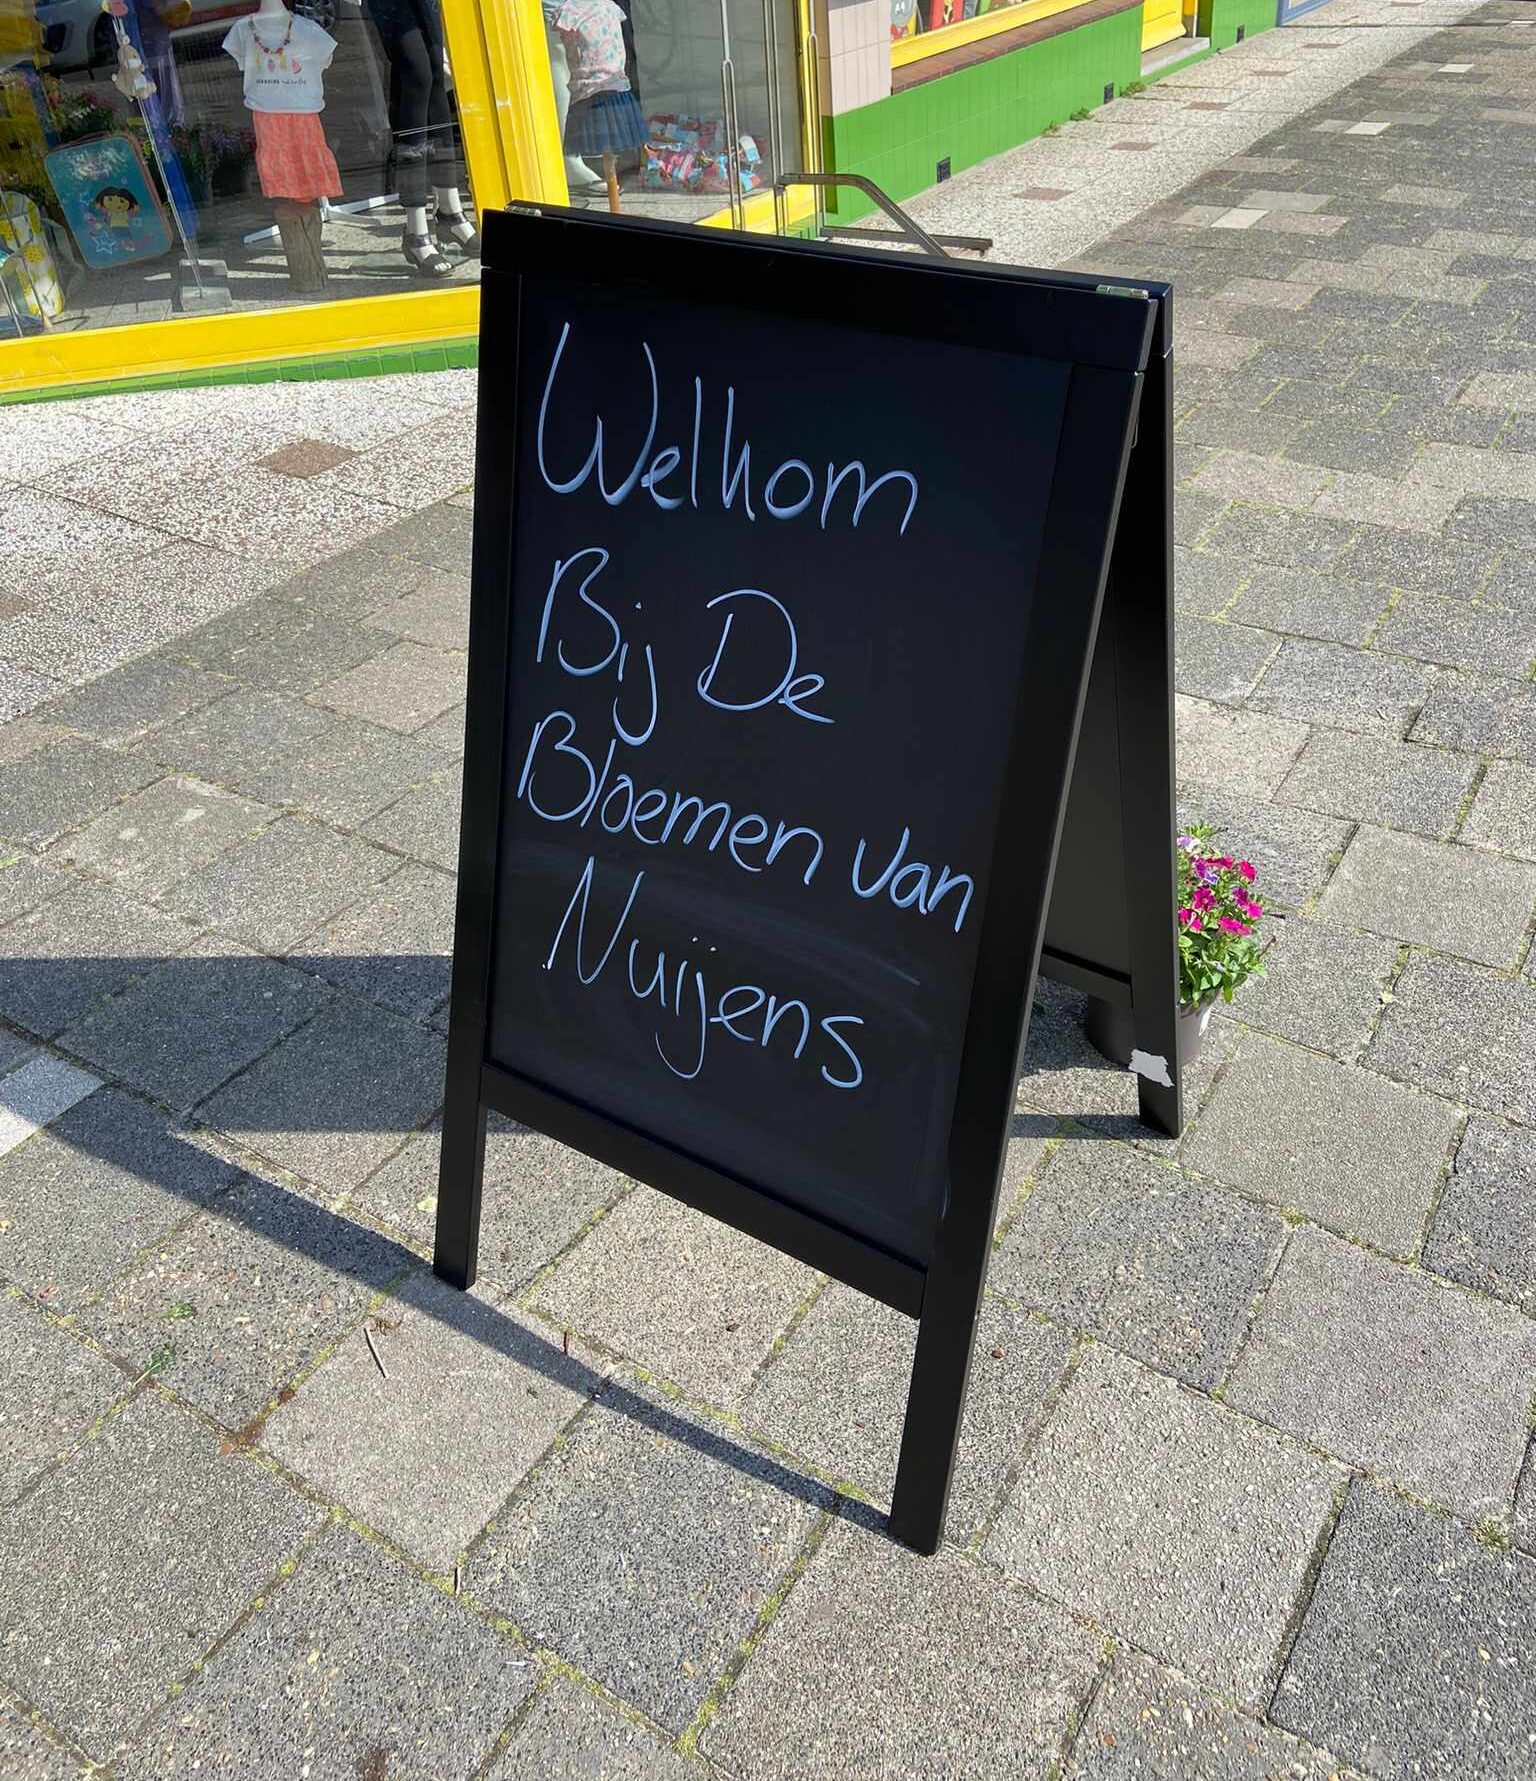 Welkom
Bij De
Bloemen van
Nuijens